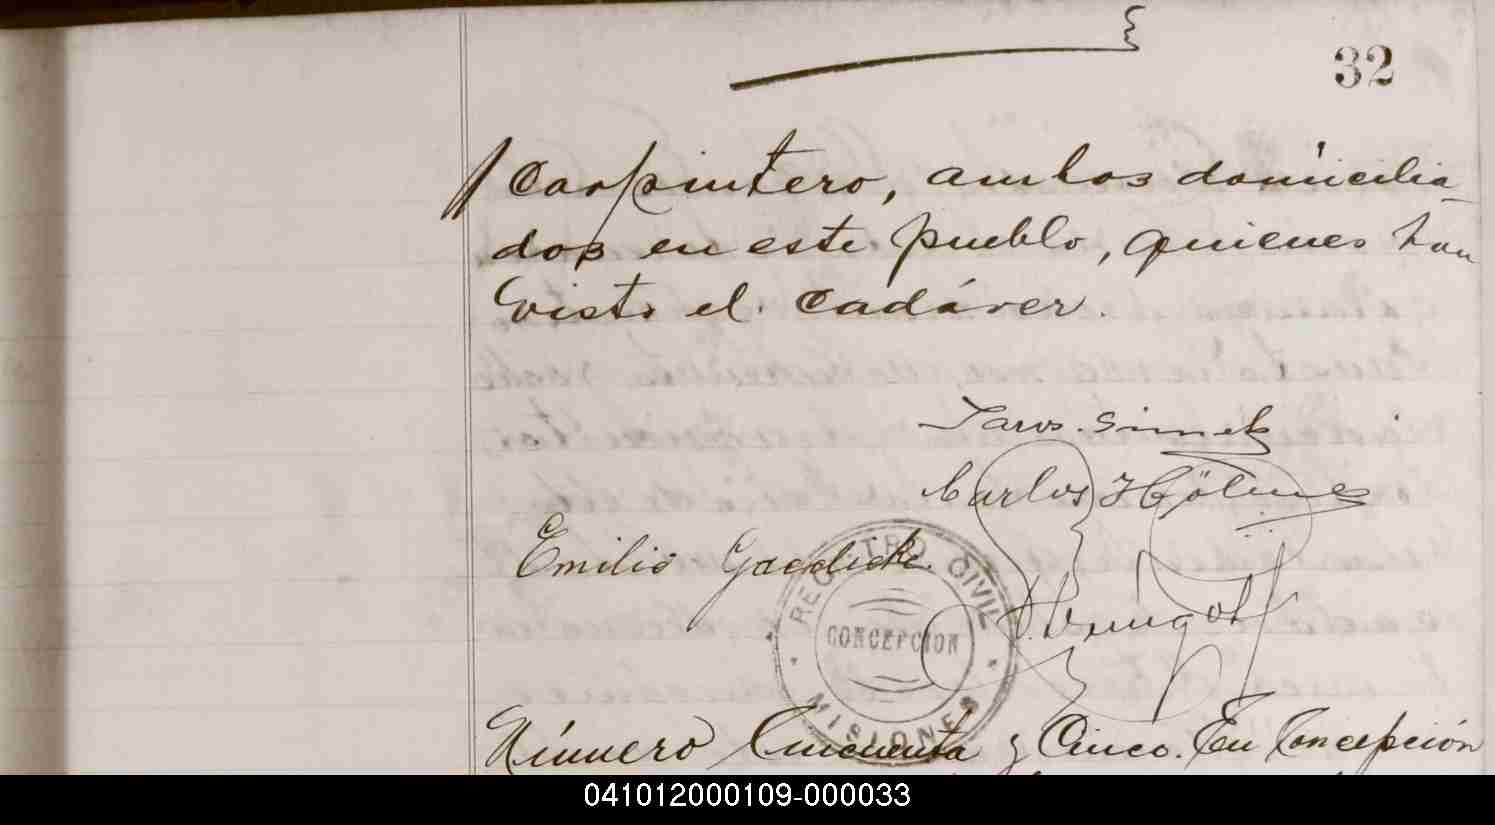 32
Carpintero, ambos domicilia-
dos en este pueblo, quienes han
visto el cadáver.
Jaros. Simek
Carlos
Emilio Gaedicke.
REGISTRO CIVIL
CONCEPCION
MISIONES
Número Cincuenta y Cinco. En Concepción
041012000109-000033